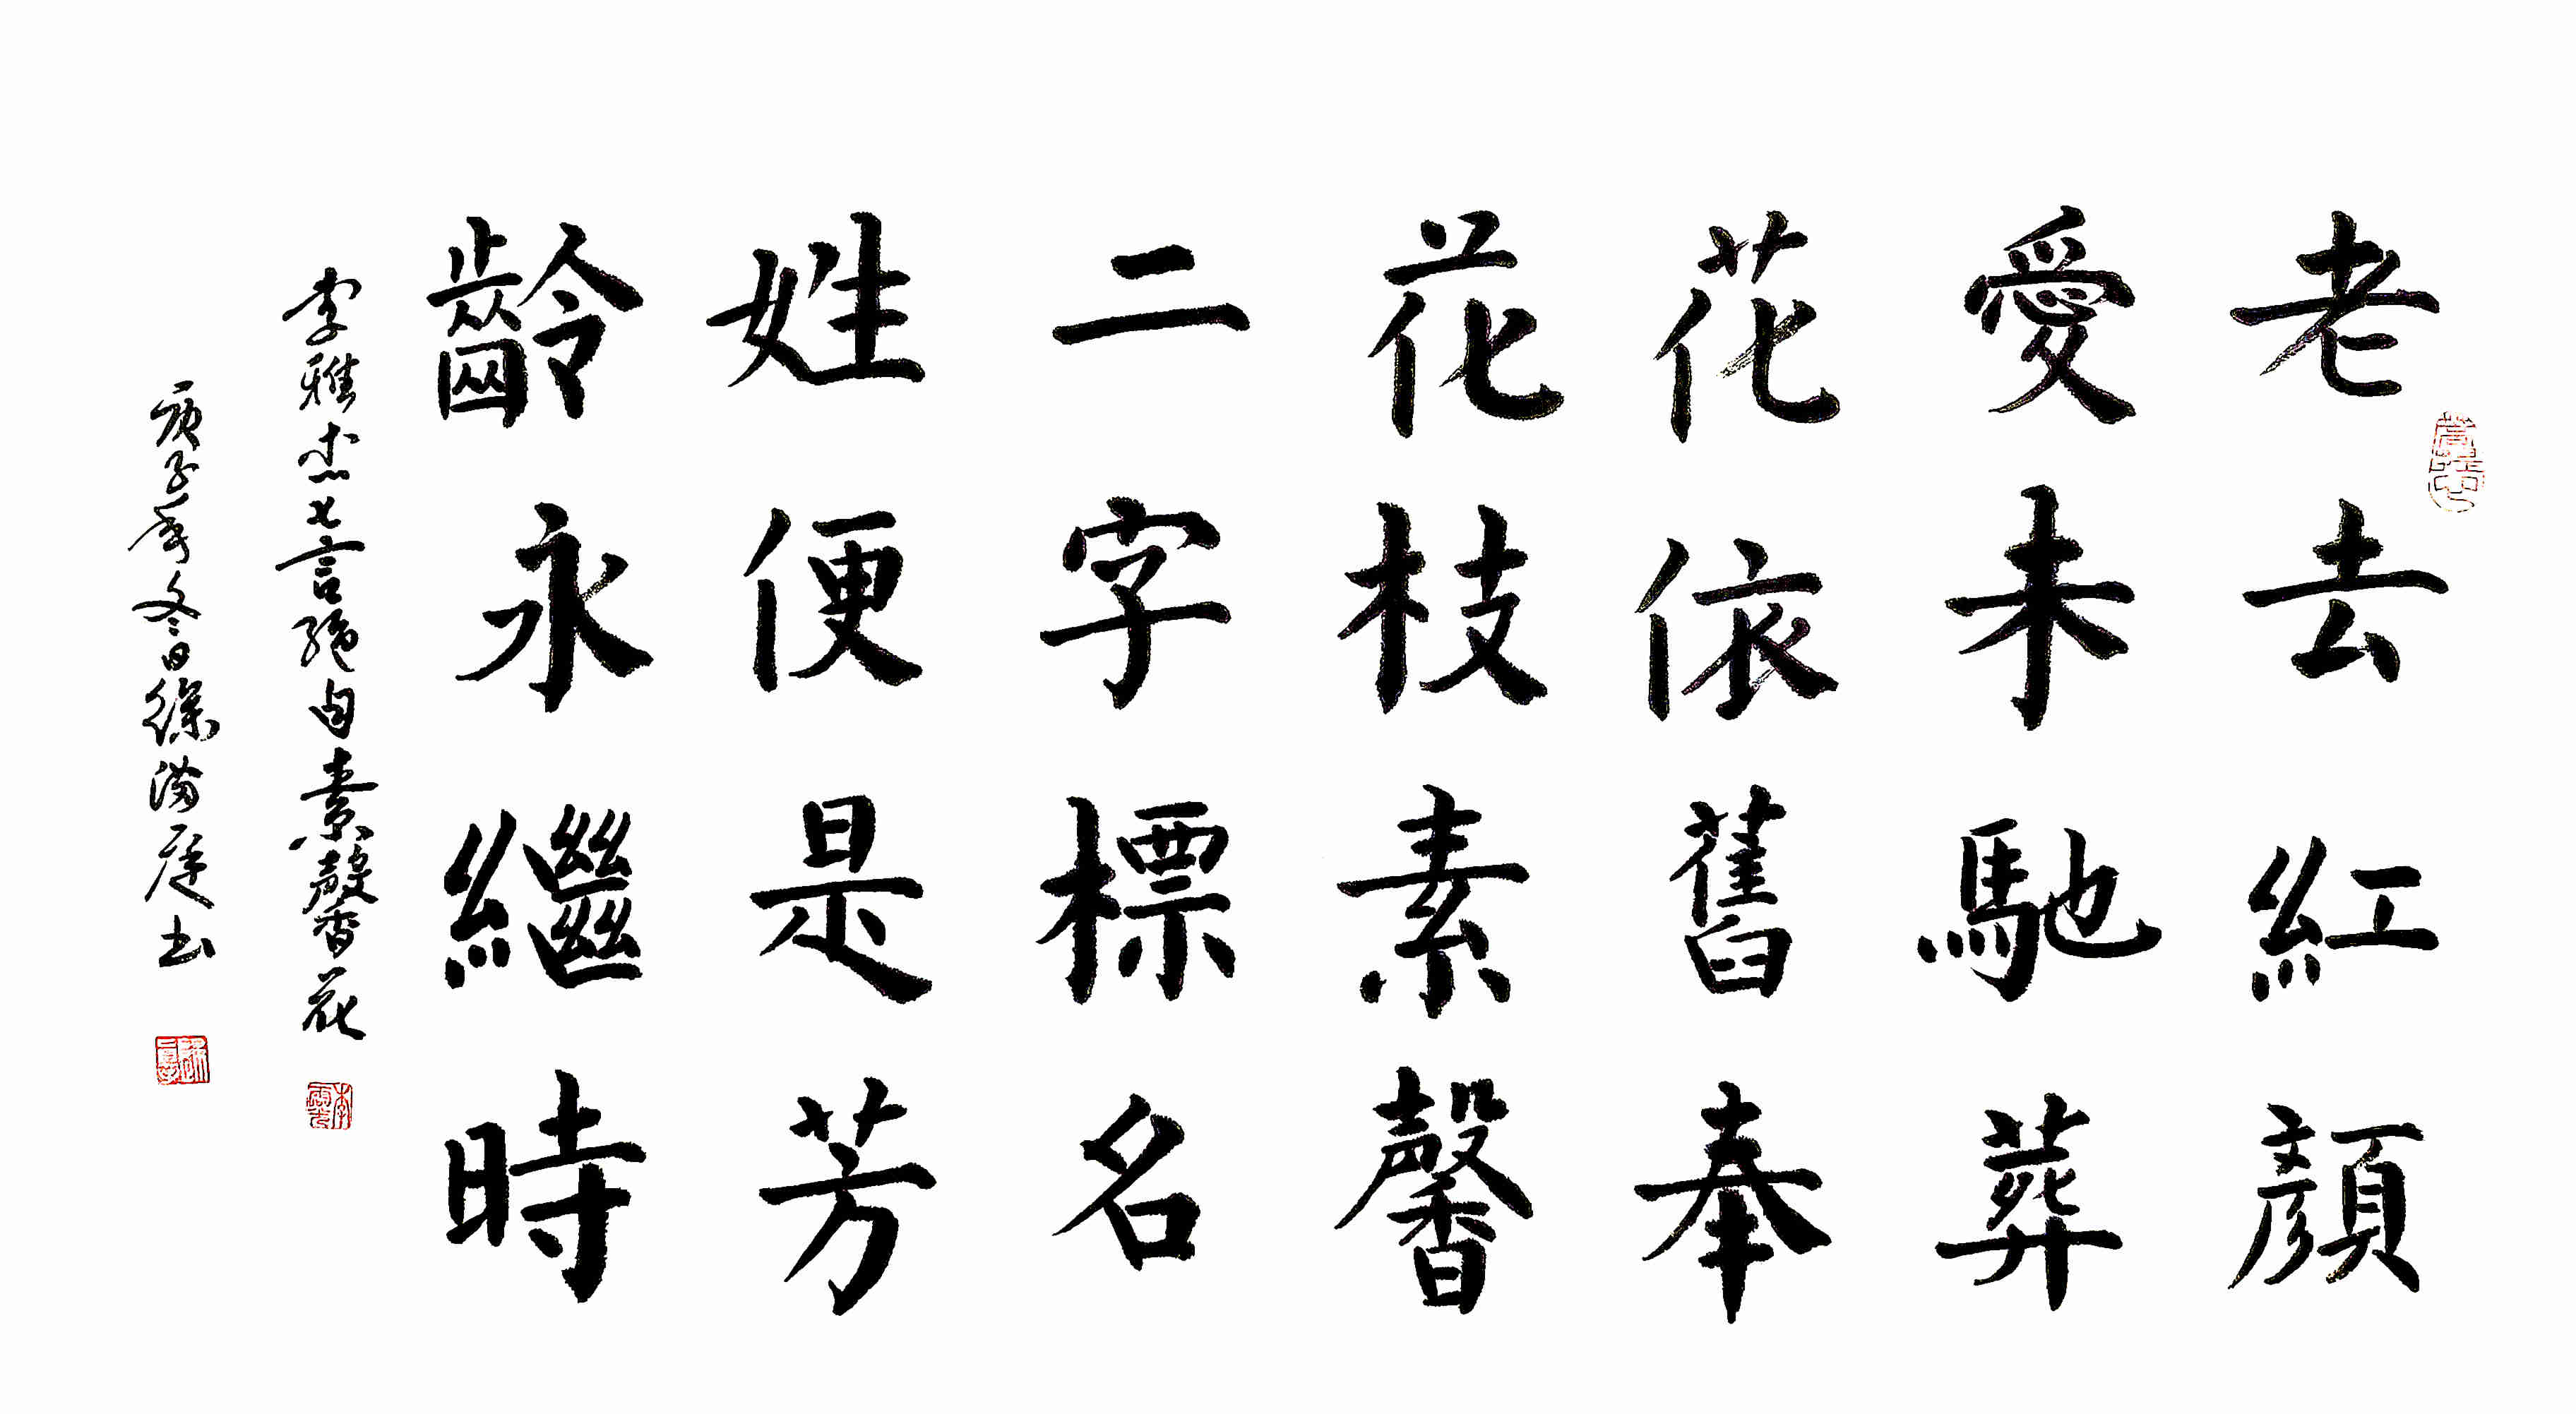 老去紅顏
愛未馳葬
花依舊奉
花枝素馨
二字標名
姓便是芳
齡永繼時
李雅杰七言绝句素馨花
庚子年冬日徐滿庭书